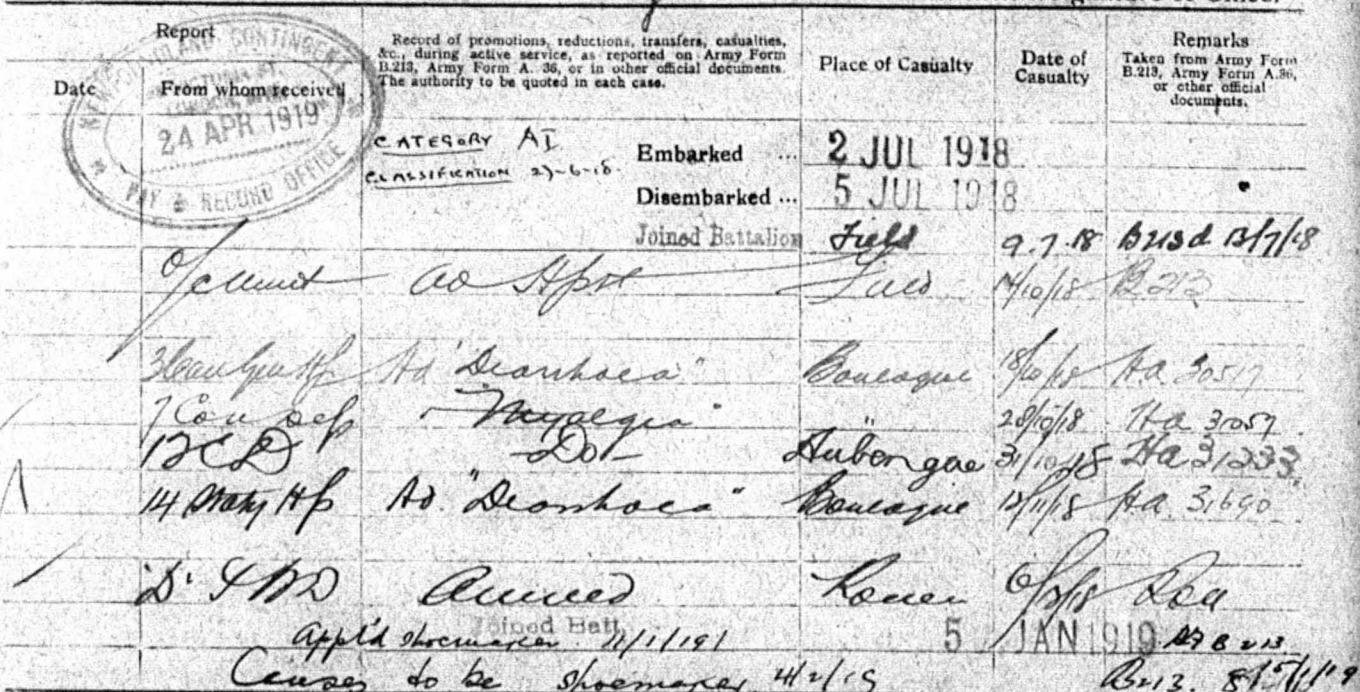 Report
Date
From whom received
Record of promotions, reductions, transfers, casualties,
&c., during active service, as reported on Army Form
B.213, Army Form A. 36, or in other official documents.
The authority to be quoted in each case.
Place of Casualty
Date of
Casualty
Remarks
Taken from Army Form
B.213, Army Form A.36,
or other official
documents.
NEWFOUNDLAND CONTINGENT
24 APR 1919
PAY & RECORD OFFICE
CATEGORY AI
CLASSIFICATION
Embarked ... 2 JUL 1918
Disembarked ... 5 JUL 1918
Joined Battalion Field 9.7.18 B213d 13/7/18
O/c ad Hpt Field /10/18 B213
3 Can Gen Hp Ad "Diarrhoea" Boulogne 18/10/18 Ha 30517
7 Con Dep "Myalgia" " 28/10/18 Ha 31057
12 C D Do Aubengue 31/10/18 Ha 31233
14 Staty Hp Ad. "Diarrhoea" Boulogne 12/11/18 Ha 31690
"D" Arrived Rouen
Joined Batt 5 JAN 1919 B213
App'd shoemaker 11/1/191
Ceases to be shoemaker 4/2/19 B213